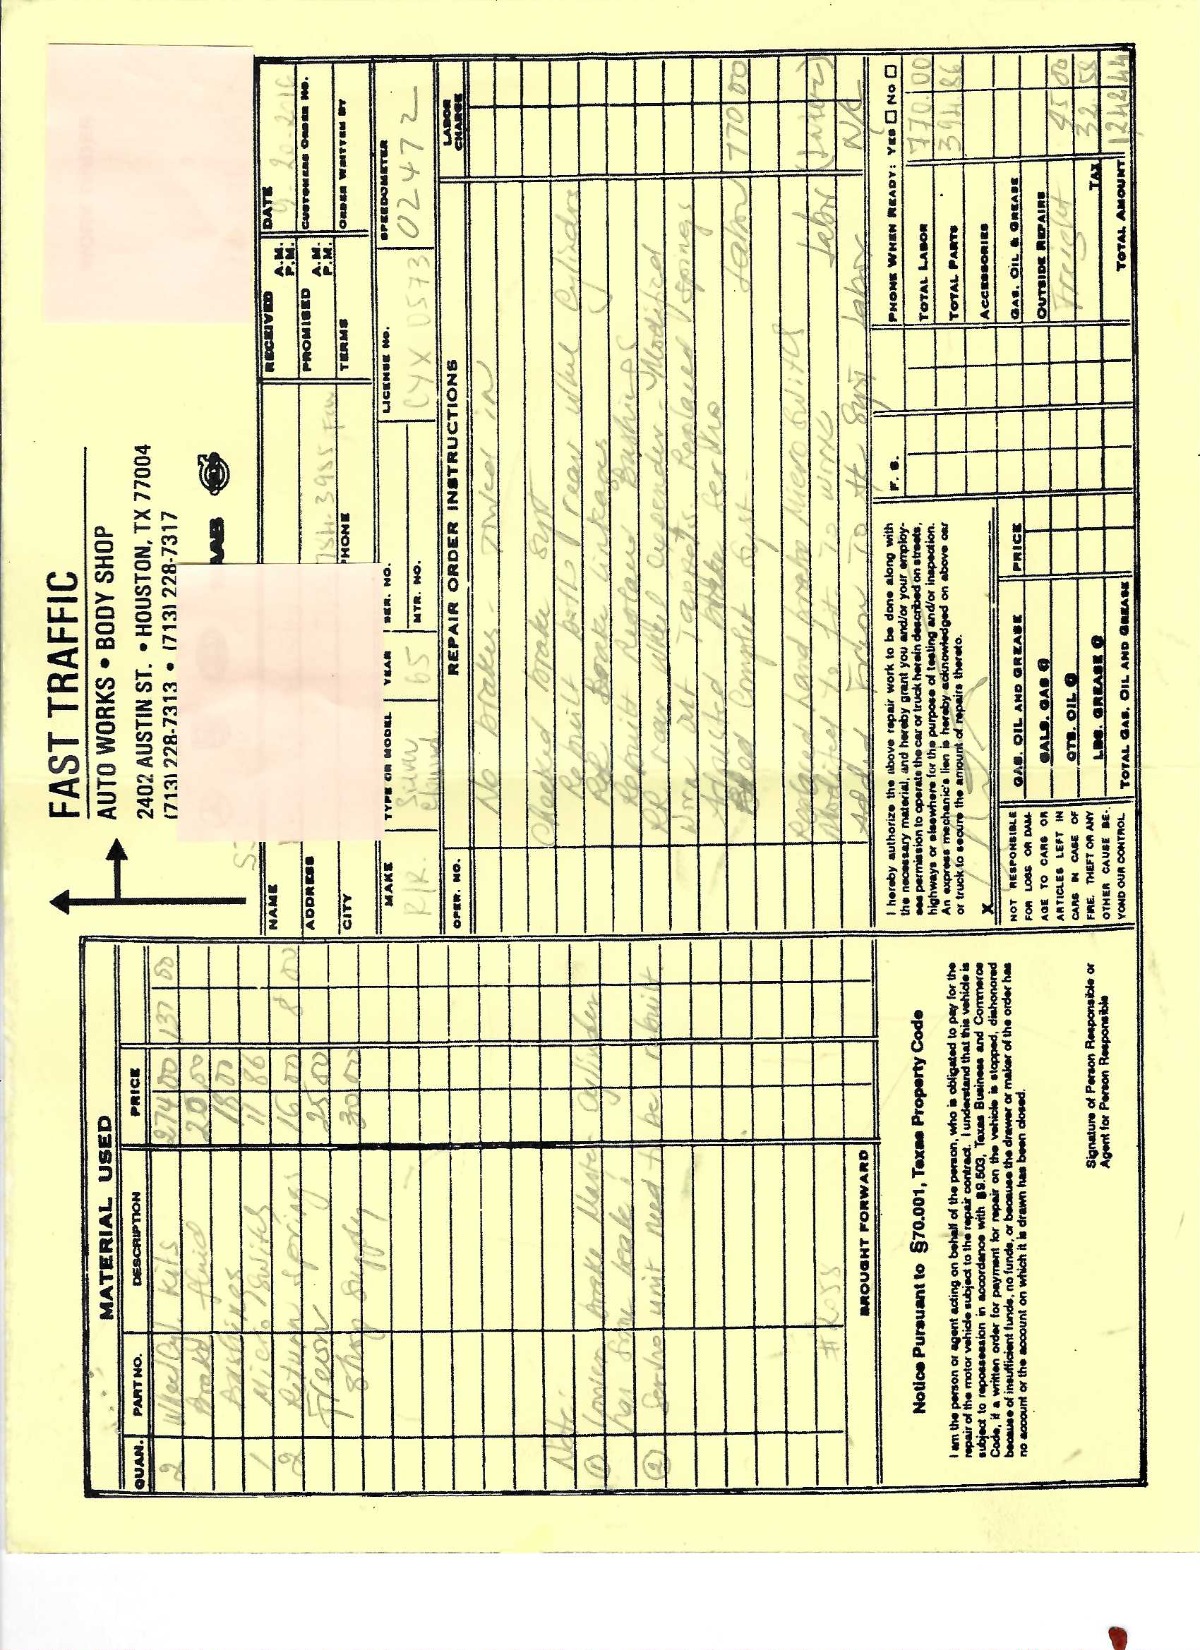 FAST TRAFFIC
AUTO WORKS • BODY SHOP
2402 AUSTIN ST. • HOUSTON, TX 77004
(713) 228-7313 • (713) 228-7317
NAME
ADDRESS
CITY
PHONE
RECEIVED A.M. P.M.
PROMISED A.M. P.M.
TERMS
DATE 9-20-2016
CUSTOMERS ORDER NO.
ORDER WRITTEN BY
MAKE R/R.
TYPE OR MODEL Silver Cloud
YEAR 65
SER. NO.
MTR. NO.
LICENSE NO. CYX 0573
SPEEDOMETER 02472
OPER. NO.
REPAIR ORDER INSTRUCTIONS
LABOR CHARGE
No brakes - Towed in
Checked brake syst
Rebuilt both rear wheel cylinders
R&R brake linkages
Rebuilt Replaced Bushings
R/R rear wheel expender - Modified
worn out tappets Replaced springs
Adjusted brake servo
Bled complet syst - labor 770 00
Replaced hand brake micro switch
Modified to fit to work labor
Added Freon To A/C syst labor N/C
PHONE WHEN READY: YES NO
TOTAL LABOR 770.00
TOTAL PARTS 394.86
ACCESSORIES
GAS, OIL & GREASE
OUTSIDE REPAIRS
Freight 45.00
TAX 32.58
TOTAL AMOUNT 1242.44
F. S.
I hereby authorize the above repair work to be done along with
the necessary material, and hereby grant you and/or your employ-
ees permission to operate the car or truck herein described on streets,
highways or elsewhere for the purpose of testing and/or inspection.
An express mechanic's lien is hereby acknowledged on above car
or truck to secure the amount of repairs thereto.
X
NOT RESPONSIBLE
FOR LOSS OR DAM-
AGE TO CARS OR
ARTICLES LEFT IN
CARS IN CASE OF
FIRE, THEFT OR ANY
OTHER CAUSE BE-
YOND OUR CONTROL
GAS, OIL AND GREASE PRICE
GALS. GAS @
QTS. OIL @
LBS. GREASE @
TOTAL GAS, OIL AND GREASE
MATERIAL USED
QUAN. PART NO. DESCRIPTION PRICE
2 Wheel Cyl Kits 274 00 137 00
Brake fluid 20 00
Bushings 18 00
1 Micro Switch 11 86
2 Return Springs 16 00 8 00
Freon 25 00
Shop Supply 30 00
Note:
(1) Lower brake Master cylinder
has some leaks
(2) Servo unit need to be rebuilt
BROUGHT FORWARD
Notice Pursuant to §70.001, Texas Property Code
I am the person or agent acting on behalf of the person, who is obligated to pay for the
repair of the motor vehicle subject to the repair contract. I understand that this vehicle is
subject to repossession in accordance with §9.503, Texas Business and Commerce
Code, if a written order for payment for repair on the vehicle is stopped, dishonored
because of insufficient funds, no funds, or because the drawer or maker of the order has
no account or the account on which it is drawn has been closed.
Signature of Person Responsible or
Agent for Person Responsible